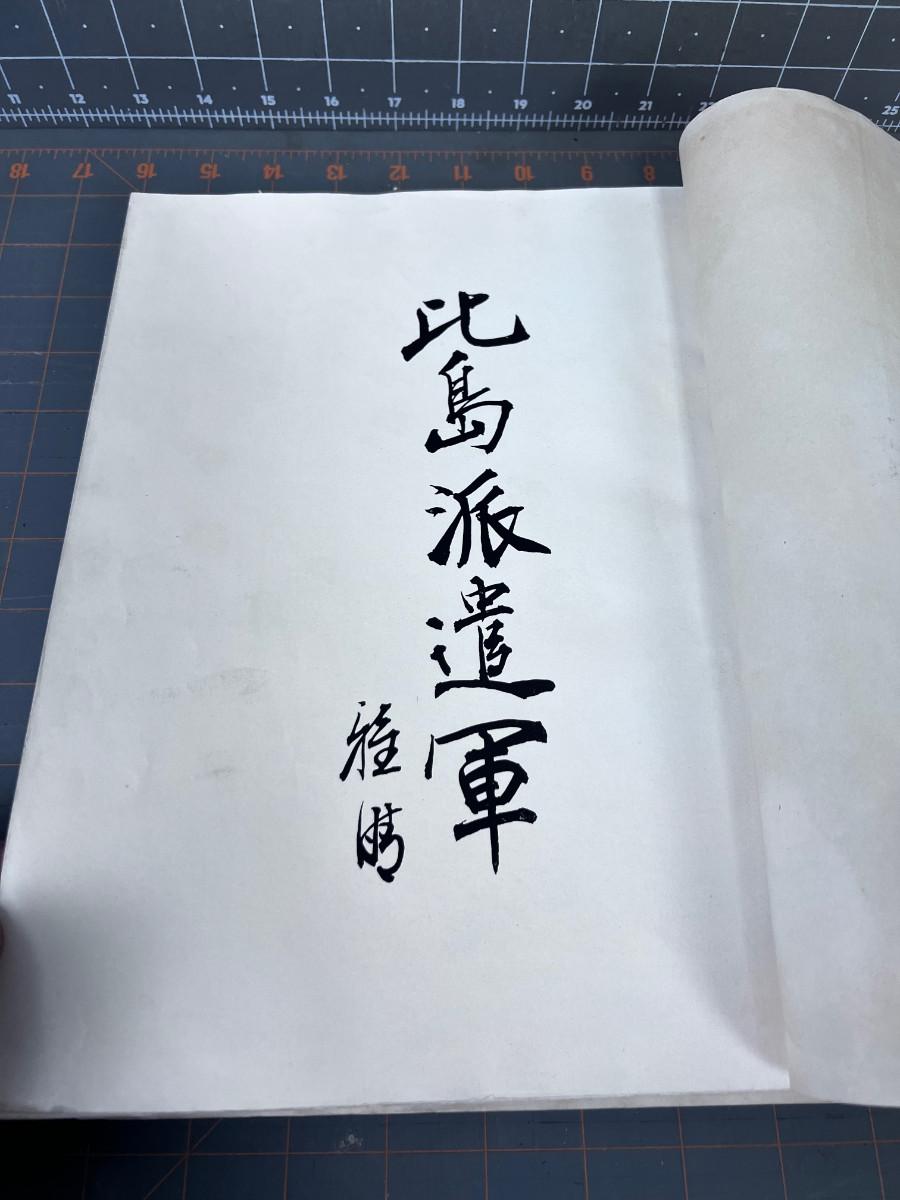 11 12 13 14 15 16 17 18 19 20 21 22 25
18 17 16 15 14 13 12 11 10 9 8
比島派遣軍
雅晴